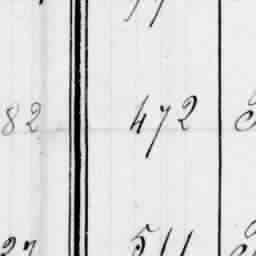 82 472
27 511